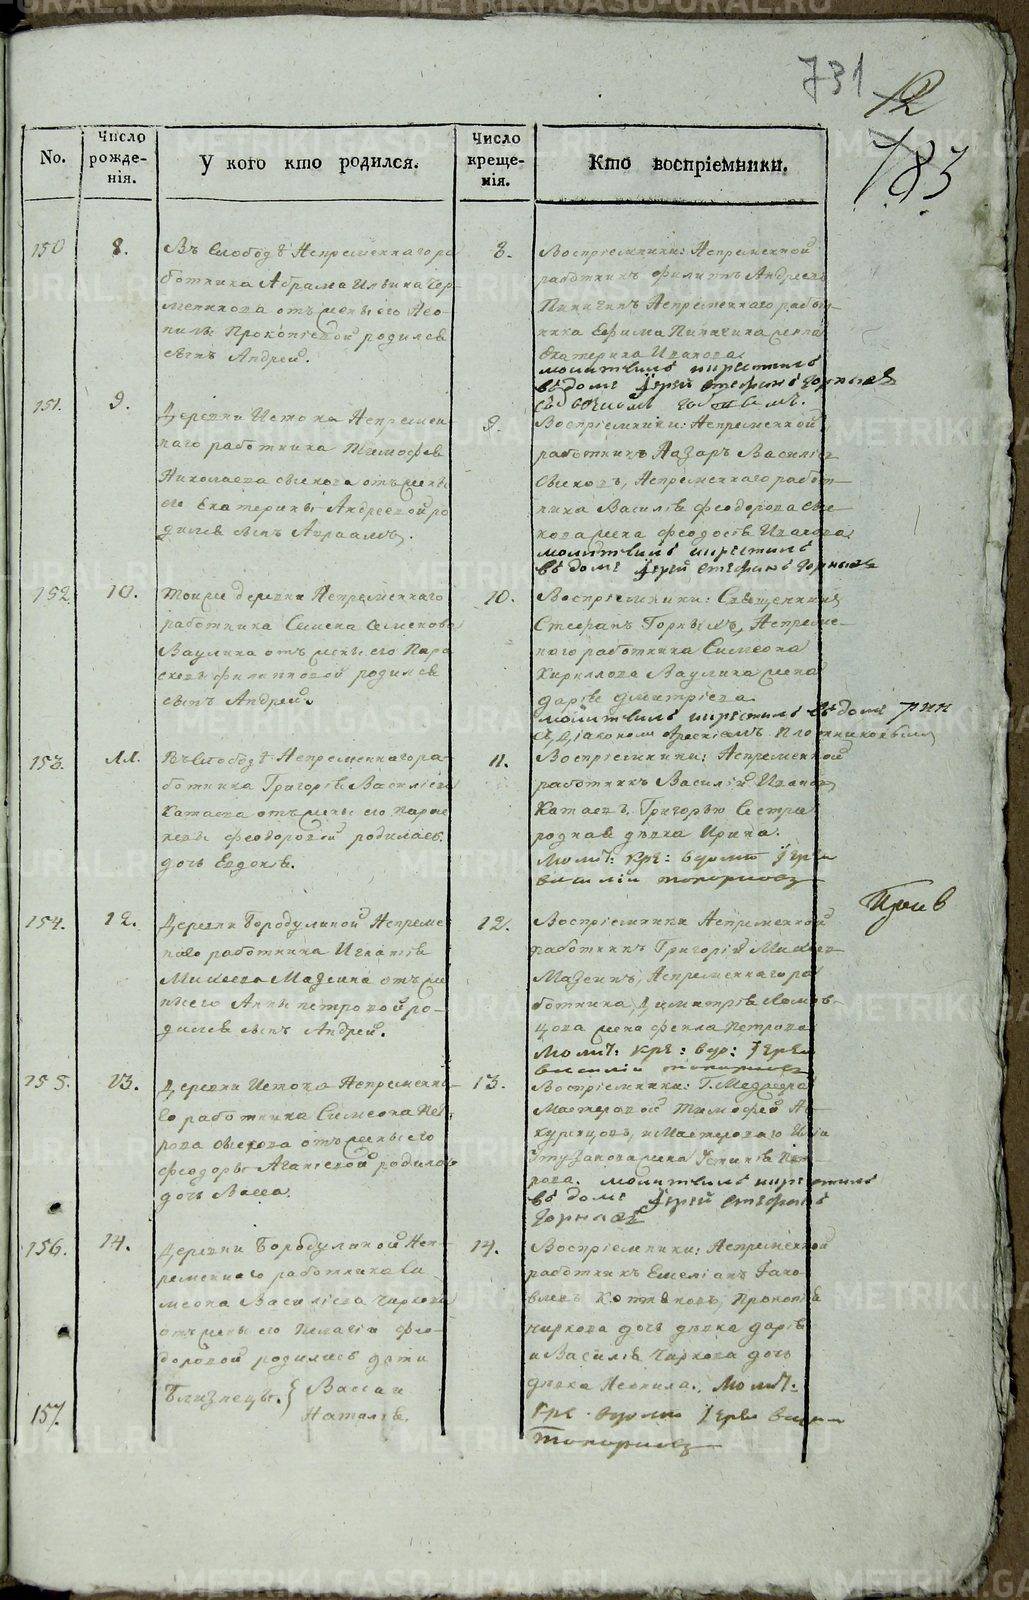 731
12
783
No.
Число рожде-нія.
У кого кто родился.
Число креще-нія.
Кто воспріемники.
150
8.
Въ Слободѣ Непременнаго ра
ботника Абрама Ильина
отъ жены его Нео-
нилы Прокопіевой родился
сынъ Андрей.
8.
Воспріемники: Непременной
работникъ Филиппъ Андреевъ
Пиничинъ, Непременнаго работ-
ника Ефима Пиничина жена
Екатерина Иванова.
молитвилъ и крестилъ
въ доме Іерей Стефанъ Горныхъ
151.
9.
Деревни Истока Непремен-
наго работника Тимофея
Николаева Сыскова отъ жены
его Екатерины Андреевой ро
дился сынъ Авраамъ.
9.
Воспріемники: Непременной
работникъ Назаръ Василіев
Сысковъ, Непременнаго работ-
ника Василія Феодорова Сыс-
кова жена Феодосія Иванова
молитвилъ и крестилъ
въ доме Іерей Стефанъ Горныхъ
152
10.
Тояже деревни Непременнаго
работника Симона Семенова
Ваулина отъ жены его Пара
скевы Филипповой родился
сынъ Андрей.
10.
Воспріемники: Священникъ
Стефанъ Горныхъ, Непреме-
ннаго работника Симеона
Кириллова Ваулина жена
Дарія Дмитріева
молитвилъ и крестилъ въ доме
153.
11.
Въ Слободѣ Непременнаго ра-
ботника Григорія Василіева
Катаева отъ жены его Парас
кевы Феодоровой родилась
дочь Евдокія.
11.
Воспріемники: Непременной
работникъ Василій Иванов
Катаевъ, Григорью Сестра
родная дѣвка Ирина.
Молит: кре: в домѣ Іереи
василіи топорковъ
154.
12.
Деревни Бородулиной Непреме-
ннаго работника Игнатія
Михеева Мазеина отъ же
ны его Анны Петровой ро-
дился сынъ Андрей.
12.
Воспріемники Непременной
работникъ Григорій Михеев
Мазеинъ, Непременнаго ра
ботника Димитрія
жена Фекла Петрова
Молит: кре: в до: Іереи
василіи топорковъ
155.
13.
Деревни Истока Непременна-
го работника Симеона Пет
рова Сыскова отъ жены его
Феодоры Агапіевой родилась
дочь Васса.
13.
Воспріемники:
Мастеровой Тимофей
и Мастероваго
жена Устинія Пет-
рова. молитвилъ и крестилъ
въ доме Іерей Стефанъ
Горныхъ
156.
14.
Деревни Бородулиной Неп-
ременнаго работника Си
меона Василіева Чиркова
отъ жены его Пелагіи Фео-
доровой родились дѣти
Близнецы. { Васса и
Наталія.
157.
14.
Воспріемники: Непременной
работникъ Емеліанъ Яко-
влевъ Прокопія
Чиркова дочь дѣвка Дарія
и Василія Чиркова дочь
дѣвка Неонила. Молит:
кре. в домѣ Іереи васили
топорковъ